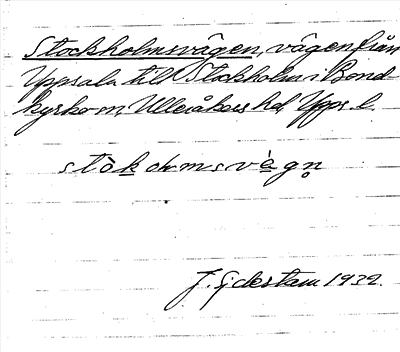 Stockholmsvägen, vägen från
Uppsala till Stockholm i Bond-
kyrko sn, Ulleråkers hd, Upps. l.
stòkolmsvègn̥
J. Ejdestam 1932.